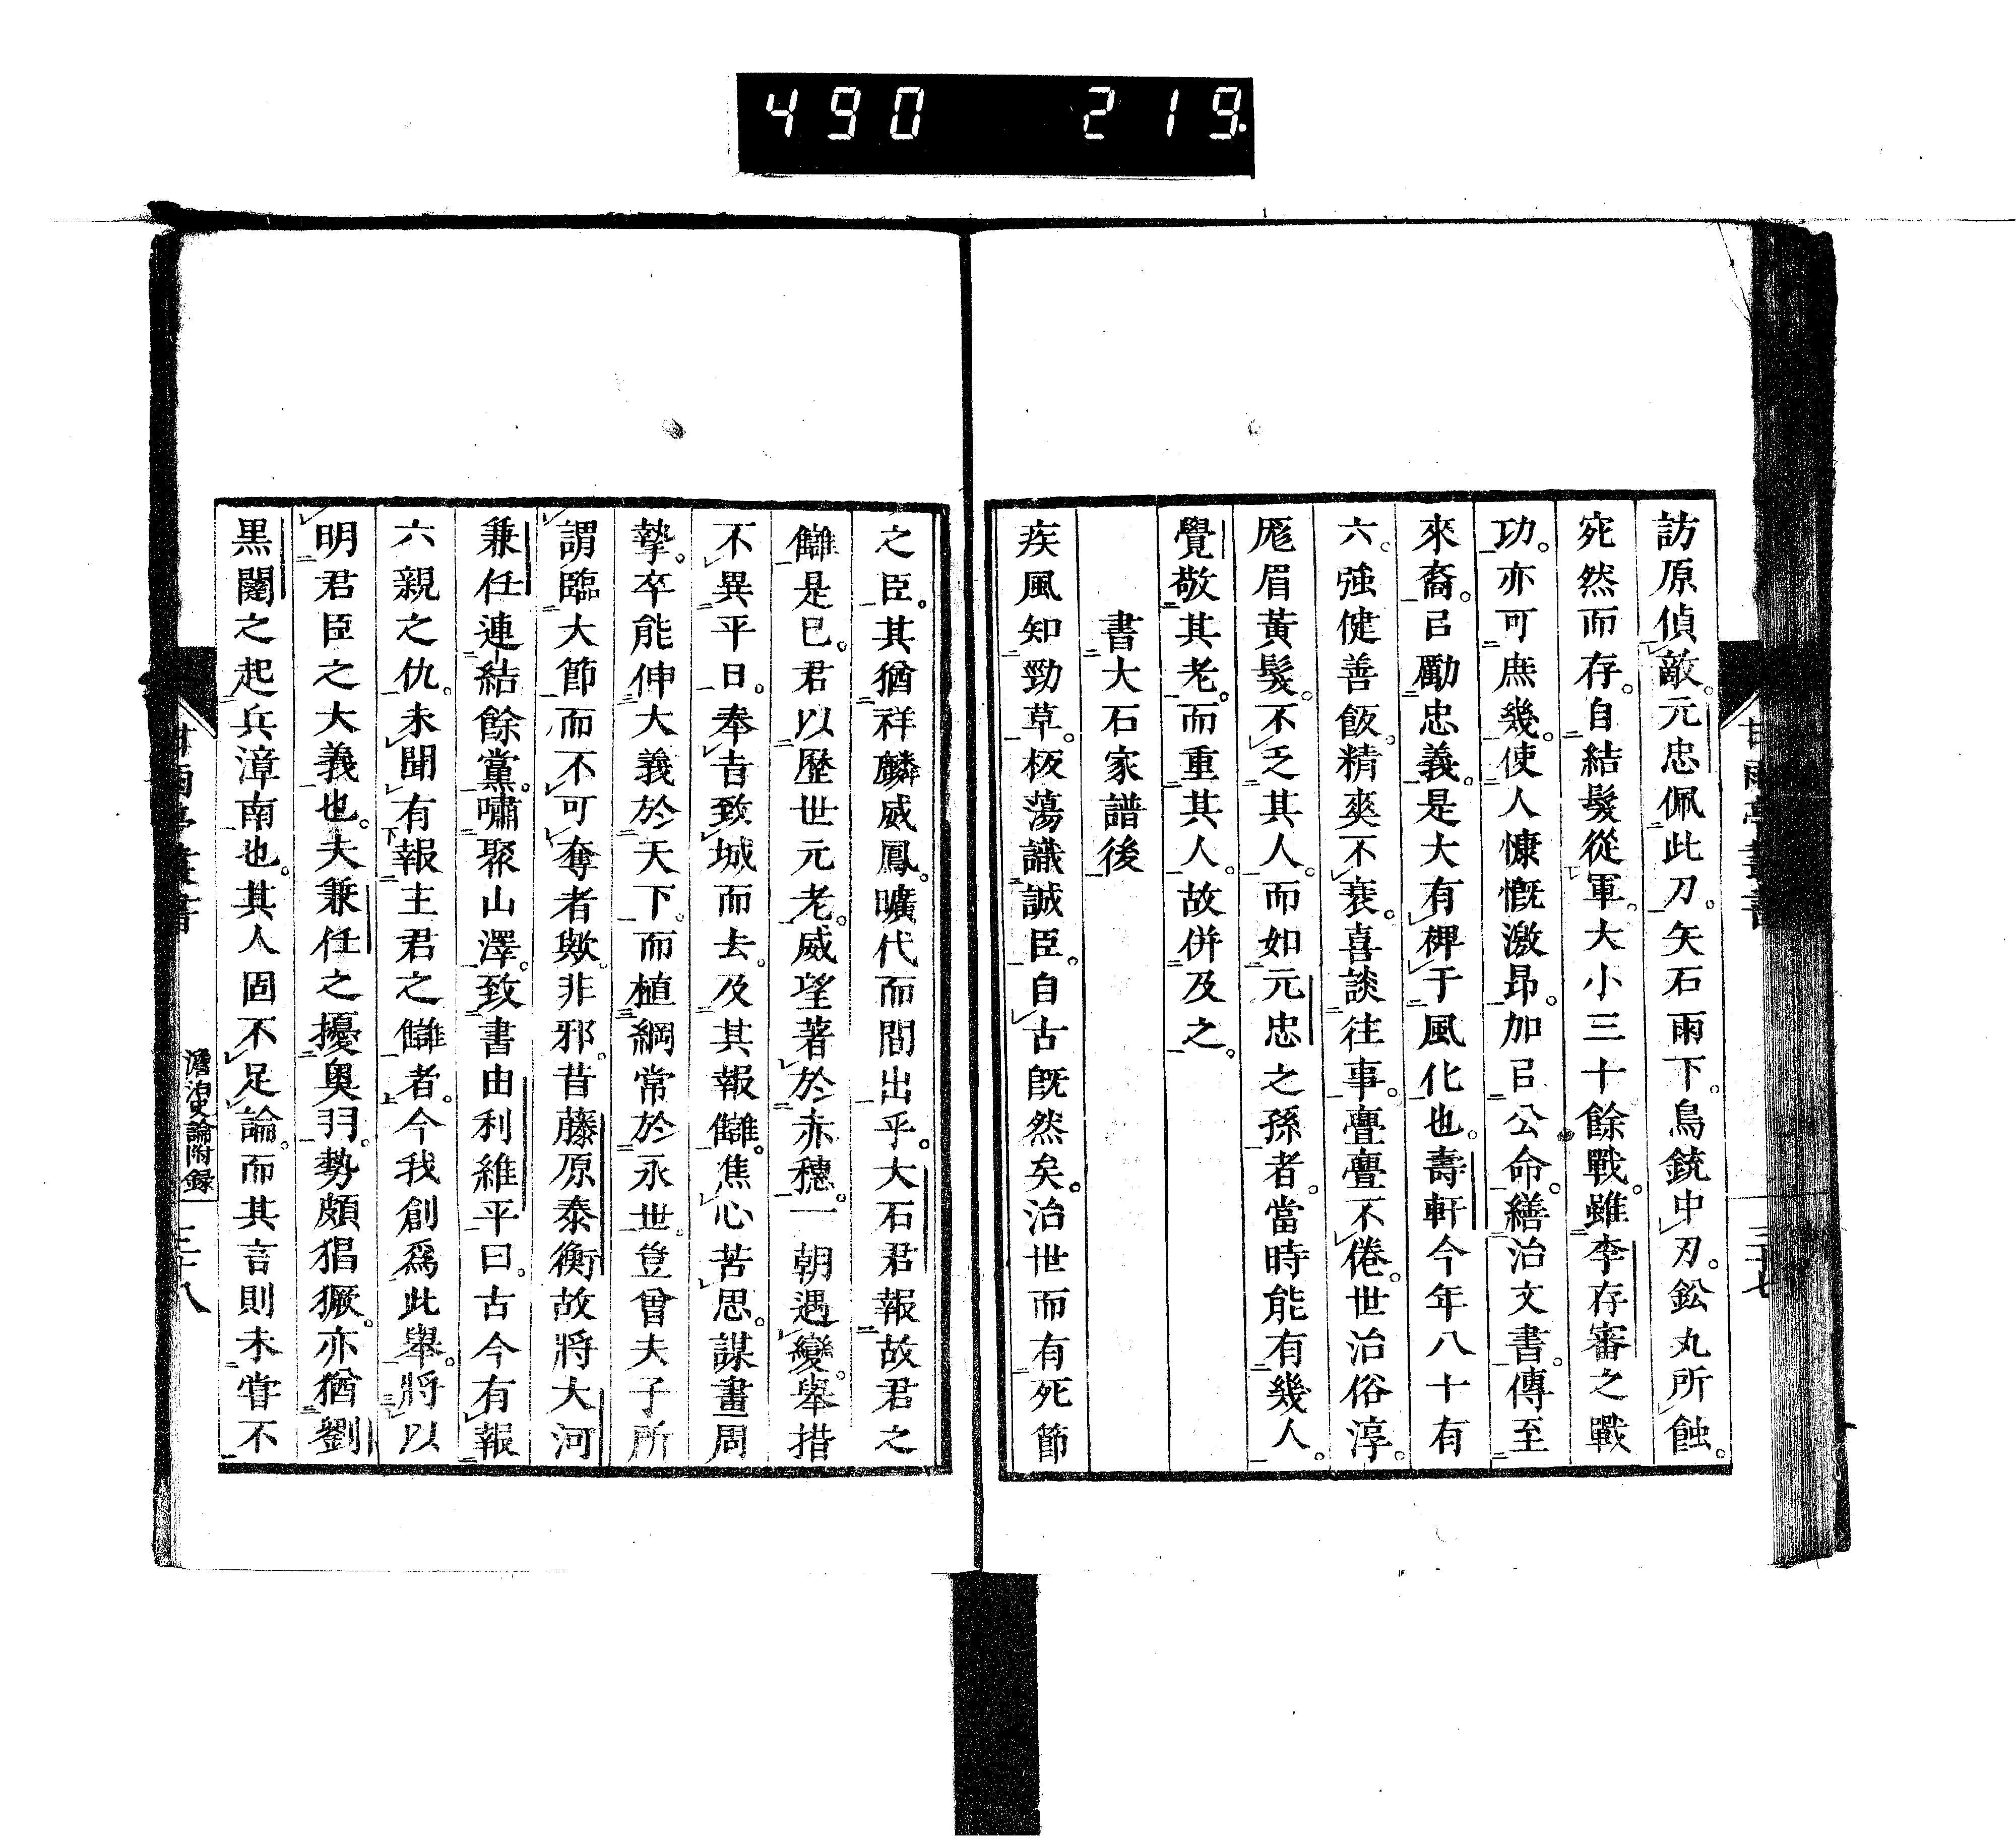 490 219.
訪原偵敵。元忠佩此刀。矢石雨下。鳥銃中刃。鈆丸所蝕。
宛然而存。自結髮從軍。大小三十餘戰。雖李存審之戰
功。亦可庶幾。使人慷慨激昂。加㠯公命。繕治文書。傳至
來裔。㠯勵忠義。是大有裨于風化也。壽軒今年八十有
六。強健善飯。精爽不衰。喜談往事。亹亹不倦。世治俗淳。
厖眉黃髮。不乏其人。而如元忠之孫者。當時能有幾人。
覺敬其老。而重其人。故併及之。
書大石家譜後
疾風知勁草。板蕩識誠臣。自古旣然矣。治世而有死節
之臣。其猶祥麟威鳳。曠代而間出乎。大石君報故君之
讎是已。君以歷世元老。威望著於赤穗。一朝遇變。舉措
不異平日。奉旨致城而去。及其報讎。焦心苦思。謀畫周
摯。卒能伸大義於天下。而植綱常於永世。豈曾夫子所
謂臨大節而不可奪者歟。非邪。昔藤原泰衡故將大河
兼任連結餘黨。嘯聚山澤。致書由利維平曰。古今有報
六親之仇。未聞有報主君之讎者。今我創爲此舉。將以
明君臣之大義也。夫兼任之擾奧羽。勢頗猖獗。亦猶劉
黑闥之起兵漳南也。其人固不足論。而其言則未嘗不
甘雨亭叢書
澹泊史論附錄
三十八